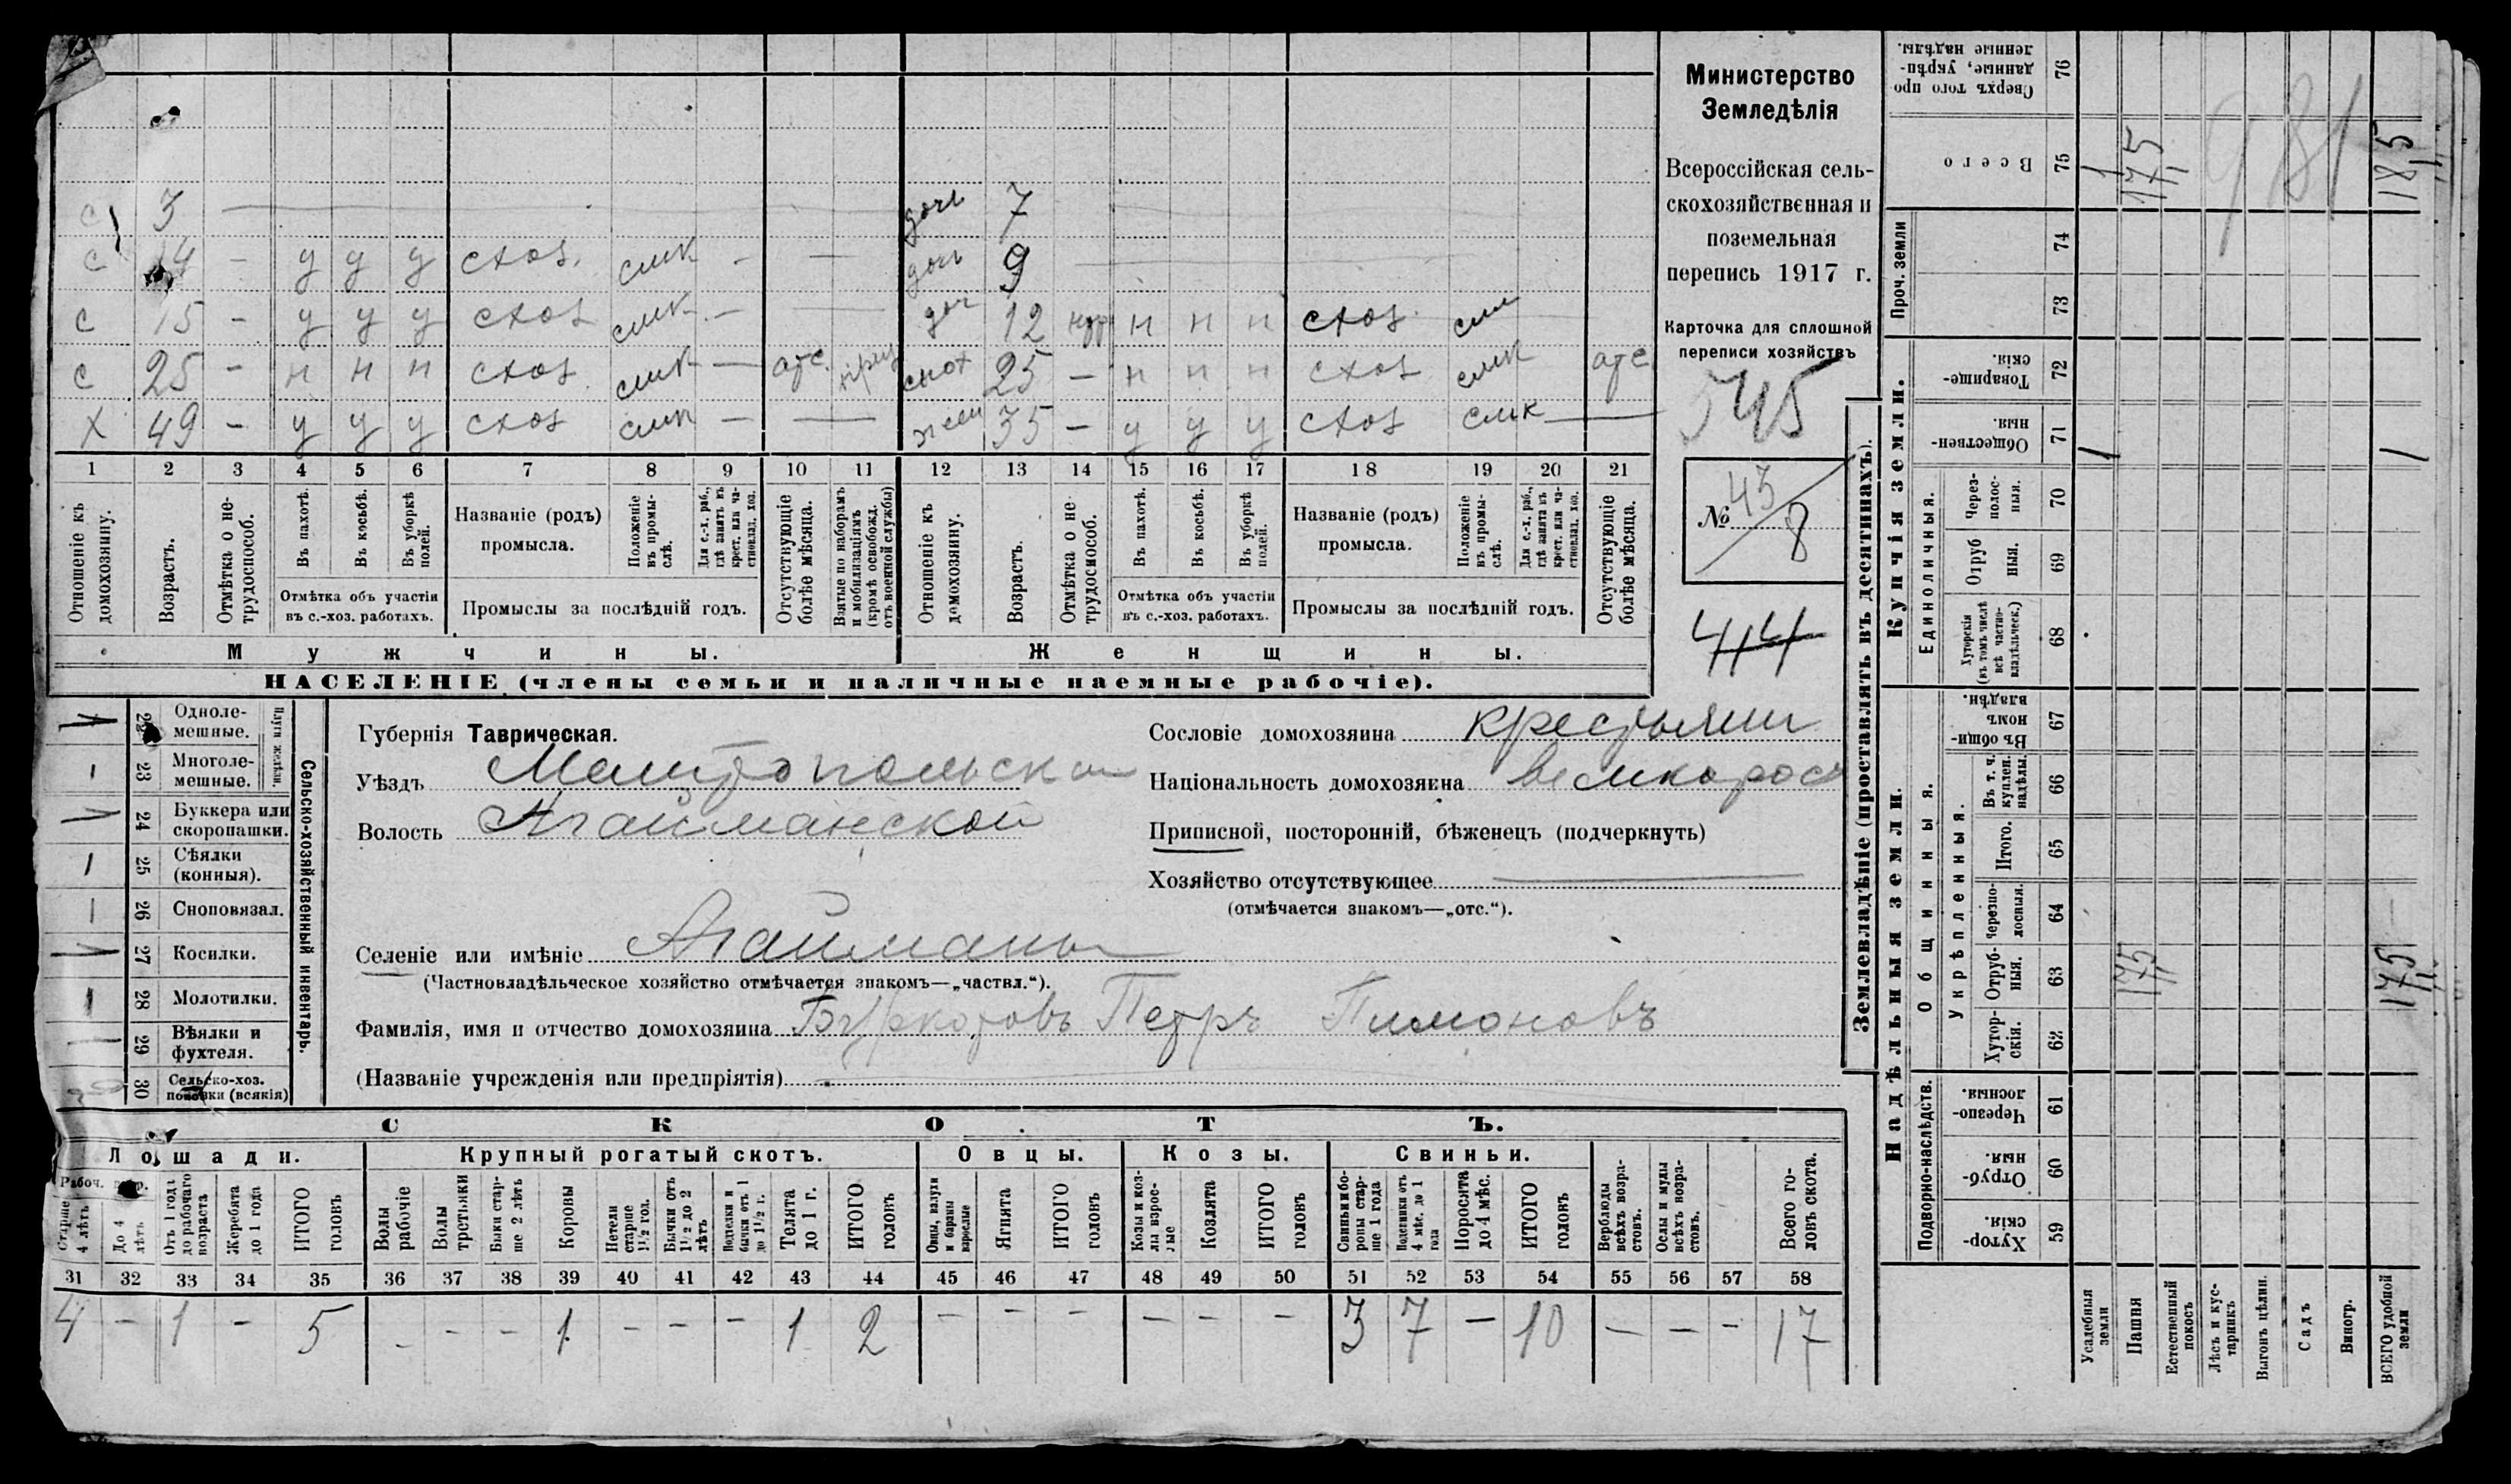 с 3 — дочь 7
с 14 - у у у схоз. смк - — дочь 9
с 15 - у у у схоз смк - — доч 12 н н н схоз. смк
с 25 - н н н схоз смк — отс. сног 25 - н н н схоз смк отс
х 49 - у у у схоз смк - — жен 35 - у у у схоз смк —
1 2 3 4 5 6 7 8 9 10 11 12 13 14 15 16 17 18 19 20 21
Отношеніе къ домохозяину.
Возрастъ.
Отмѣтка о нетрудоспособ.
Въ пахотѣ.
Въ косьбѣ.
Въ уборкѣ полей.
Отмѣтка объ участіи
въ с.-хоз. работахъ.
Названіе (родъ)
промысла.
Положеніе въ промыслѣ.
Для с.-х. раб., гдѣ занятъ въ крест. или частновлад. хоз.
Промыслы за послѣдній годъ.
Отсутствующіе болѣе мѣсяца.
Взятые по наборамъ и мобилизаціямъ (кромѣ освобожд. отъ военной службы)
Отношеніе къ домохозяину.
Возрастъ.
Отмѣтка о не трудоспособ.
Въ пахотѣ.
Въ косьбѣ.
Въ уборкѣ полей.
Отмѣтка объ участіи
въ с.-хоз. работахъ.
Названіе (родъ)
промысла.
Положеніе въ промыслѣ.
Для с.-х. раб., гдѣ занята въ крест. или частновлад. хоз.
Промыслы за послѣдній годъ.
Отсутствующіе болѣе мѣсяца.
Мужчины. Женщины.
НАСЕЛЕНІЕ (члены семьи и наличные наемные рабочіе).
Министерство
Земледѣлія
Всероссійская сель-
скохозяйственная и
поземельная
перепись 1917 г.
Карточка для сплошной
переписи хозяйствъ
545
№ 43/8
414
Сельско-хозяйственный инвентарь.
Плуги желѣзн.
22 Одноле-
мешные.
1 23 Многоле-
мешные.
24 Буккера или
скоропашки.
1 25 Сѣялки
(конныя).
1 26 Сноповязал.
27 Косилки.
1 28 Молотилки.
29 Вѣялки и
фухтеля.
30 Сельско-хоз.
повозки (всякія)
Губернія Таврическая.
Уѣздъ Мелитопольскій
Волость Агайманской
Селеніе или имѣніе Агайманы
(Частновладѣльческое хозяйство отмѣчается знакомъ—„частвл.“).
Фамилія, имя и отчество домохозяина Буркотовъ Петръ Пимоновъ
(Названіе учрежденія или предпріятія)
Сословіе домохозяина крестьянин
Національность домохозяина великорос
Приписной, посторонній, бѣженецъ (подчеркнуть)
Хозяйство отсутствующее
(отмѣчается знакомъ—„отс.“).
СКОТЪ.
Лошади. Крупный рогатый скотъ. Овцы. Козы. Свиньи.
Рабоч. возр.
Старше 4 лѣтъ
До 4 лѣтъ
Отъ 1 года до рабочаго возраста
Жеребята до 1 года
ИТОГО головъ
Волы рабочіе
Волы третьяки
Быки старше 2 лѣтъ
Коровы
Нетели старше 1½ год.
Бычки отъ 1½ до 2 лѣтъ
Подтелки и бычки отъ 1 до 1½ г.
Телята до 1 г.
ИТОГО головъ
Овцы, валухи и бараны взрослые
Ягнята
ИТОГО головъ
Козы и козлы взрослые
Козлята
ИТОГО головъ
Свиньи и боровы старше 1 года
Подсвинки отъ 4 мѣс. до 1 года
Поросята до 4 мѣс.
ИТОГО головъ
Верблюды всѣхъ возрастовъ.
Ослы и мулы всѣхъ возрастовъ.
Всего головъ скота.
31 32 33 34 35 36 37 38 39 40 41 42 43 44 45 46 47 48 49 50 51 52 53 54 55 56 57 58
4 - 1 - 5 - - - 1 - - - 1 2 - - - - - - 3 7 - 10 - - - 17
Землевладѣніе (проставлять въ десятинахъ).
Надѣльныя земли.
Подворно-наслѣдств.
Хутор-
скія. 59
Отруб-
ныя. 60
Черезпо-
лосныя. 61
Общинныя.
Укрѣпленныя.
Хутор-
скія. 62
Отруб-
ныя. 63
Черезпо-
лосныя. 64
Итого. 65
Въ т. ч. куплен. надѣлы. 66
Въ общи-
номъ
владѣн. 67
Купчія земли.
Единоличныя.
Хуторскія (въ томъ числѣ всѣ частновладѣльческ.) 68
Отруб
ныя. 69
Через-
полос-
ныя. 70
Обществен-
ныя. 71
Товарище-
скія. 72
Проч. земли
73 74
Всего 75
Сверхъ того про
данные, укрѣп-
ленные надѣлы. 76
Усадебныя земли
Пашня
Естественный покосъ
Лѣсъ и кустарникъ
Выгонъ цѣлин.
Садъ
Виногр.
ВСЕГО удобной земли
175 175
1 1
1 175 981 185